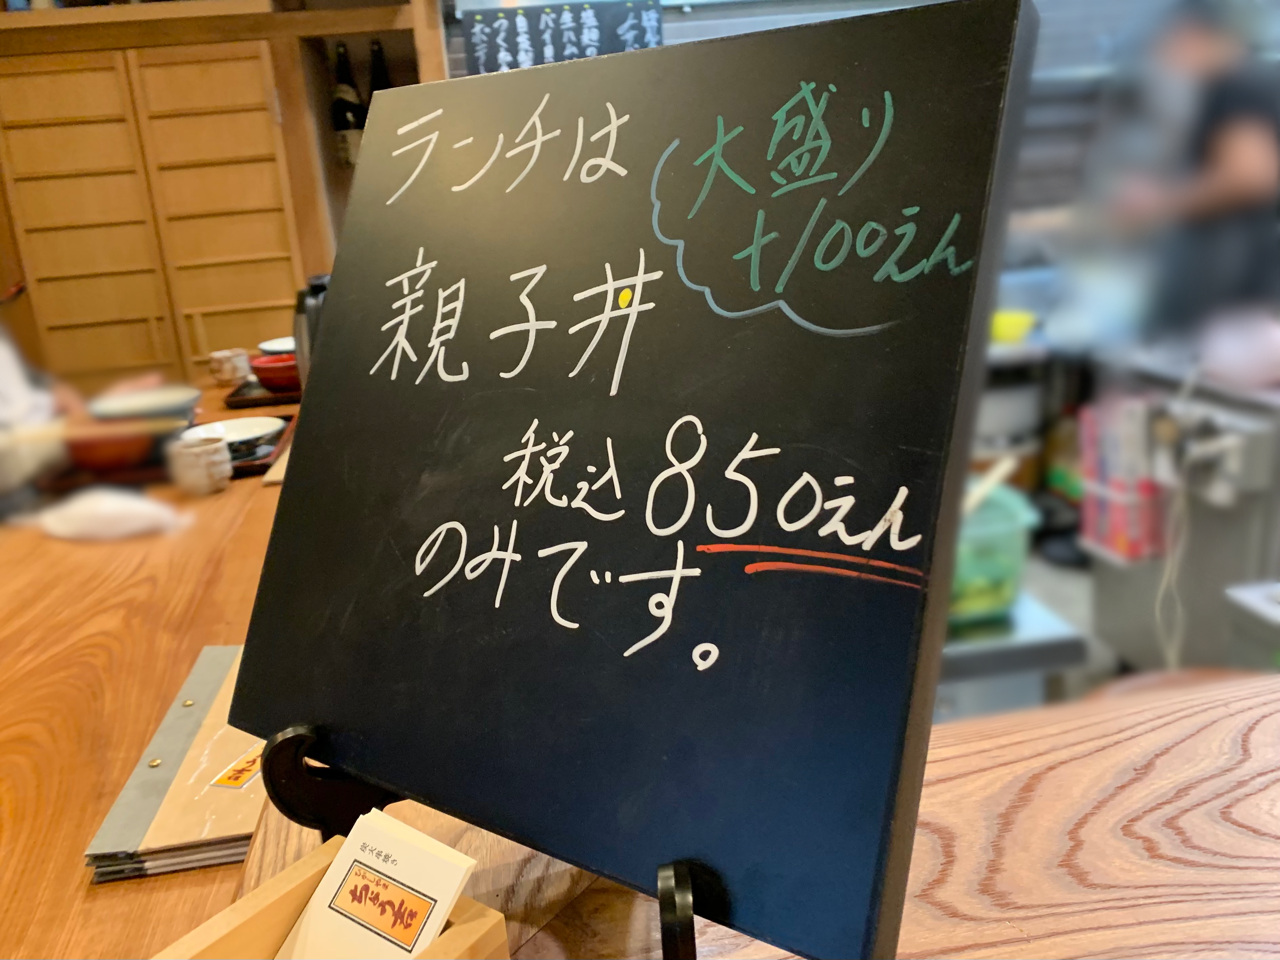 ランチは
大盛り
+100えん
親子丼
税込850えん
のみです。
炭火串焼き